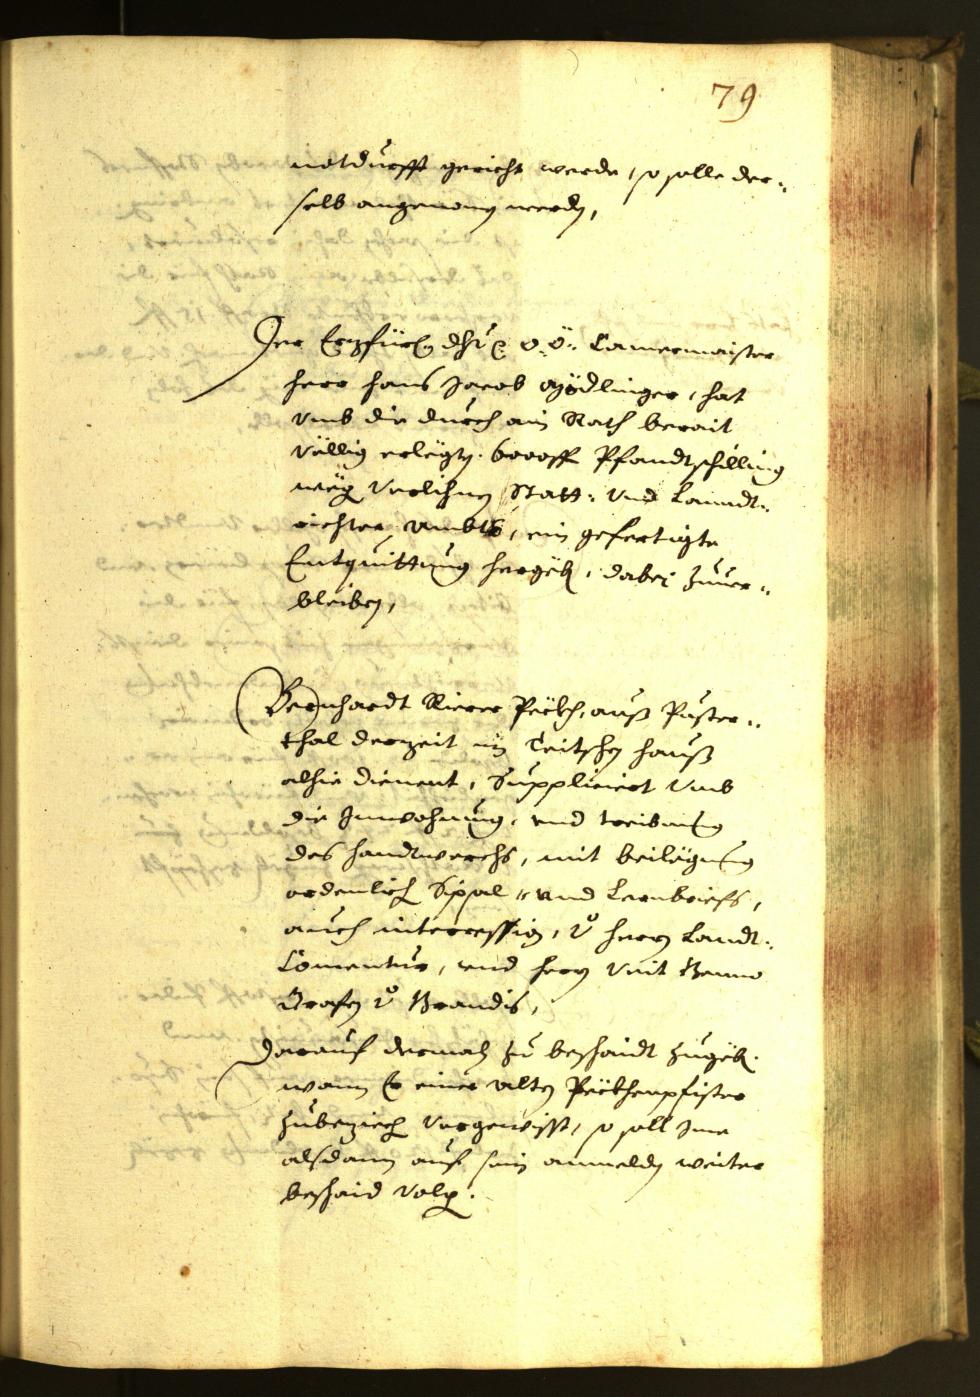 79
notdurfft gericht werde, so solle der=
selb angenomen werden,
Der Erzfür: Dht: o: ö: Camermaister
herr Hans Jacob Mödlinger, hat
umb die durch ain Rath berait
völlig erlegten 6000 fl Pfandtschilling
weg: verlihnen Statt: und Lanndt=
richter ambts, ein gefertigte
Entquittung hergeb:, dabei zuver=
bleiben,
Bernhardt Rierer Peckh, auß Puster=
thal derzeit im Teitschen Hauß
alhie dienent, Suppliciert umb
die Innwohnung, und treibung
des Handtwerchs, mit beilegung
ordenlich: und Lernbriefs,
auch intercession, v: herrn Landt=
Comentur, und herrn Veit Benno
Grafen v: Brandis,
Darauf dermaln zu beschaidt zugeb:
wann Er einer alten Peckhenpfister
zubeziech: vergewisst, so soll Ime
alsdann auf sein anmelden weiter
beschaid volg: